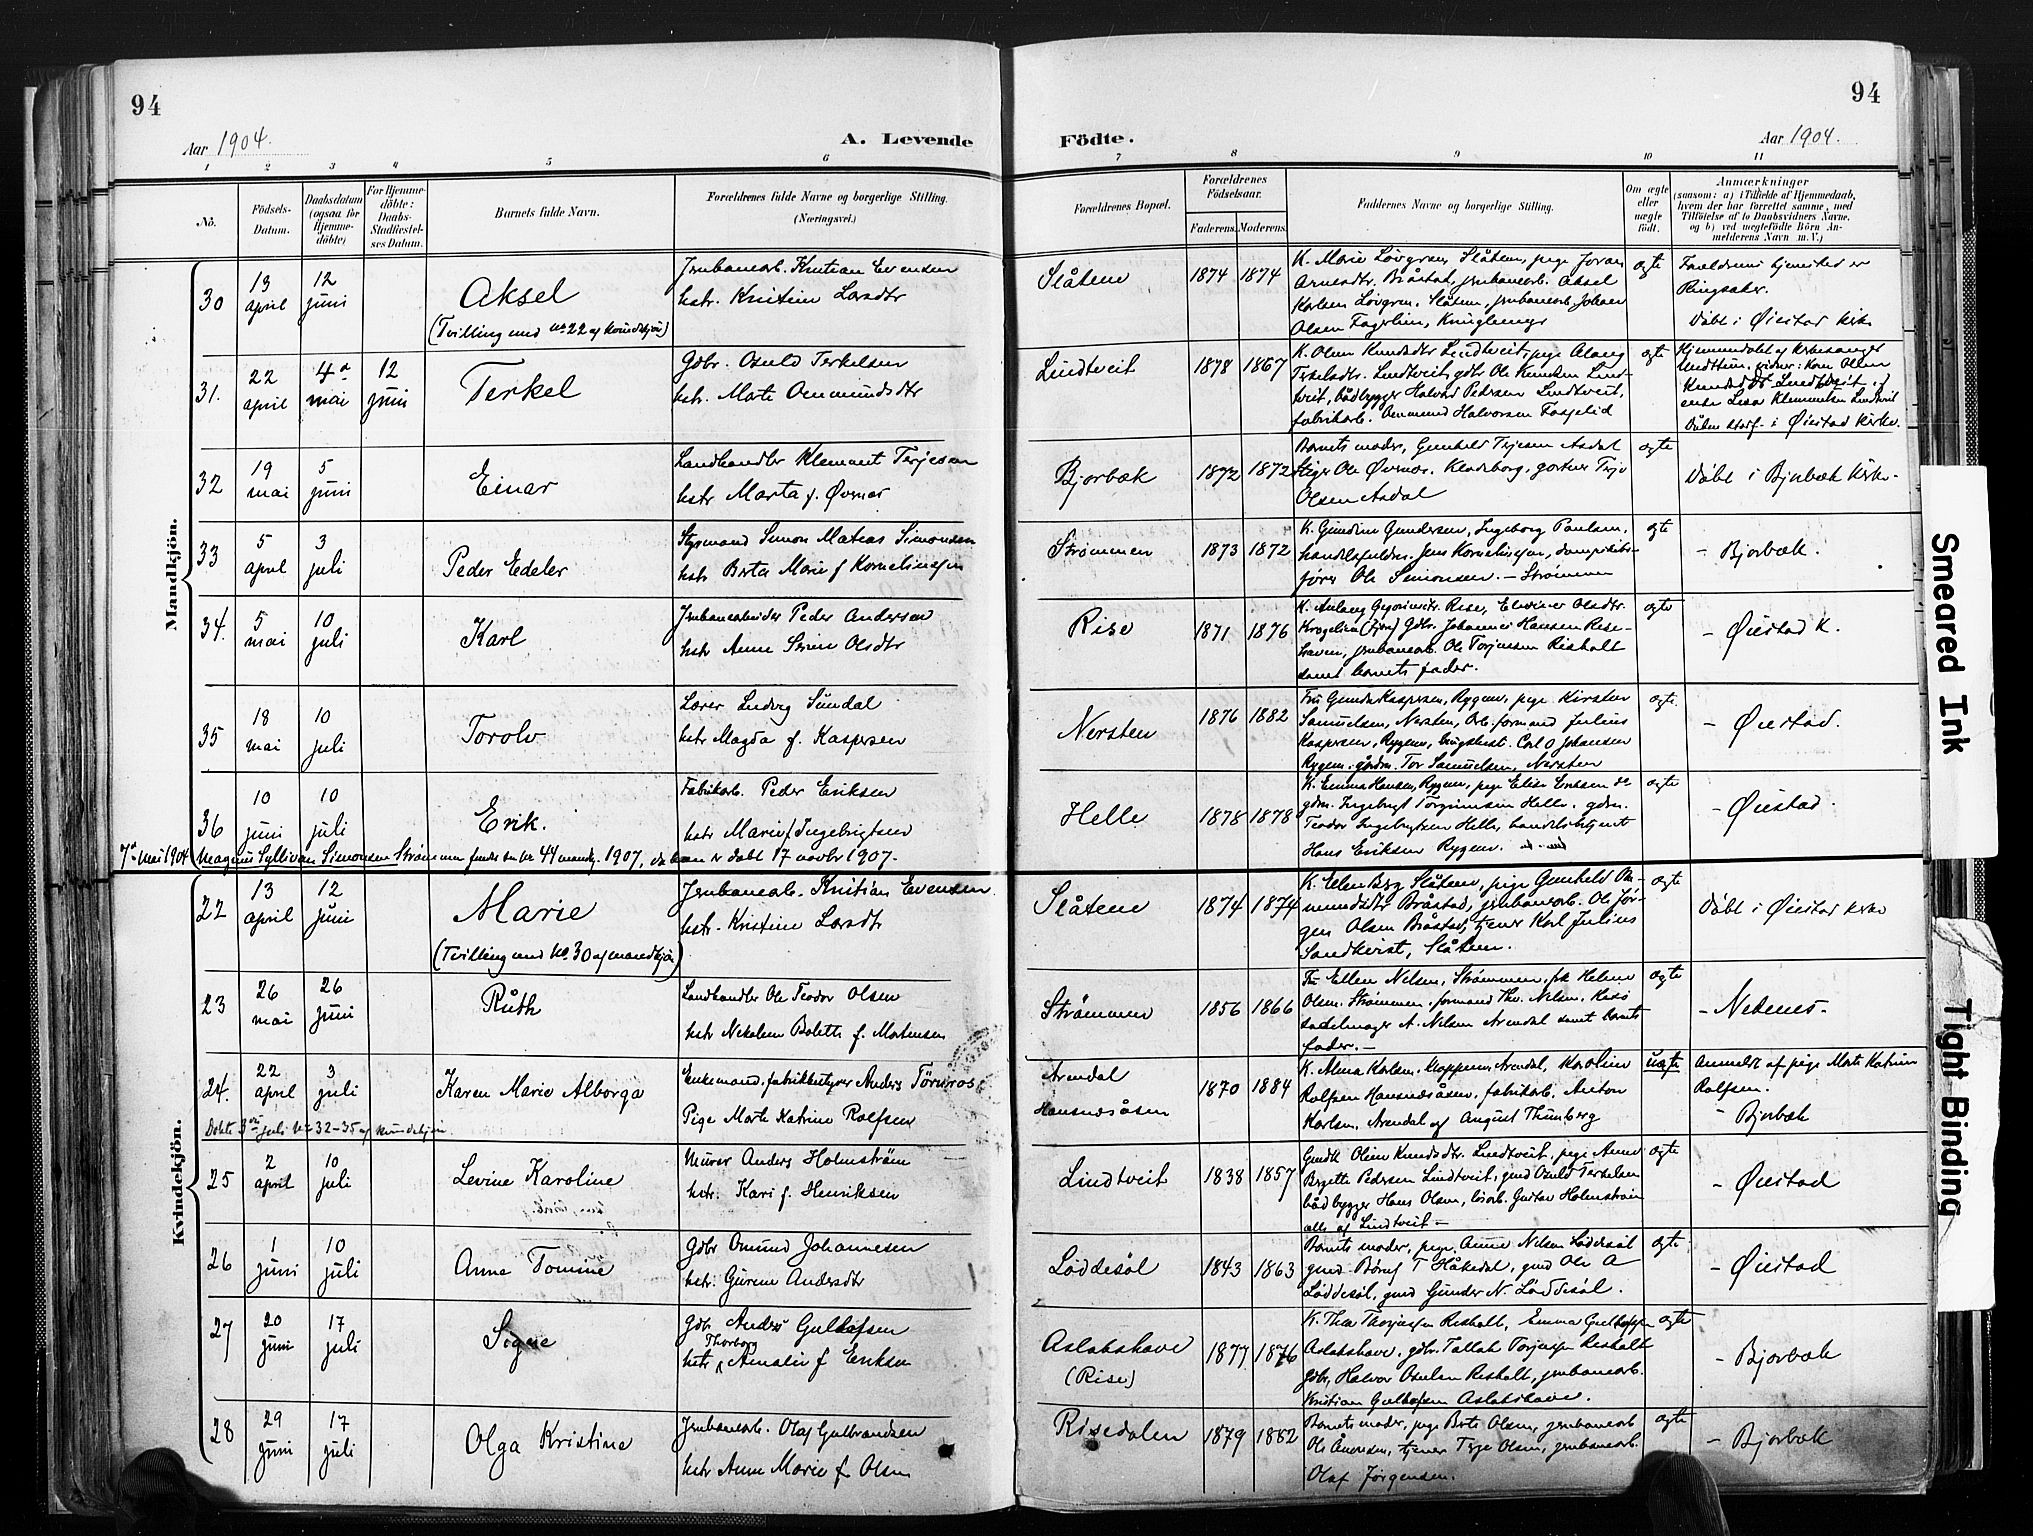 94
94
Aar 1904.
A. Levende
Födte.
Aar 1904.
1 2 3 4 5 6 7 8 9 10 11
No.
Födsels-
Datum.
Daabsdatum
(ogsaa for
Hjemme-
döbte)
For Hjemme-
döbte:
Daabs-
Stadfæstel-
ses Datum.
Barnets fulde Navn.
Forældrenes fulde Navne og borgerlige Stilling.
(Næringsvei.)
Forældrenes Bopæl.
Forældrenes
Födselsaar.
Faderens. Moderens.
Faddernes Navne og borgerlige Stilling.
Om ægte
eller
uægte
födt.
Anmærkninger
(saasom: a) i Tilfælde af Hjemmedaab,
hvem der har forrettet samme, med
Tilföielse af to Daabsvidners Navne,
og b) ved uægtefödte Börn An-
melderens Navn m. V.)
Mandkjön.
30
13
april
12
juni
Aksel
(Tvilling med No 22 af kvindekjön)
Jernbanearb. Kristian Evensen
hstr. Kristine Larsdtr
Slåtene
1874 1874
K. Marie Lövgren, Slåtene, pige Joran
Arnesdtr. Bråstad, jernbanearb. Aksel
Karlsen Lövgren, Slåtene, jernbanearb. Johan
Olsen Fagerlien,
ægte
Forældrenes hjemsted er
Ringsaker.
Döbt i Øiestad kirke
31.
22
april
4de
mai
12
juni
Terkel
Gdbr. Osuld Terkelsen
hstr. Marte Ommundsdtr
Lindtveit
1878 1867
K. Olene Knudsdtr Lindtveit, pige Aslaug
Terkelsdtr. Lindtveit, gdbr Ole Knudsen Lind-
tveit, bådbygger Halvor Pedersen Lindtveit,
fabrikarb. Ommund Halvorsen Fosselid
ægte
Hjemmedøbt af kirkesanger
vidner: Kone Olene
Knudsdtr Lindtveit og
enke Lisa Klemmetsen Lindtveit
Dåben stadf. i Øiestad Kirke.
32
19
mai
5
juni
Einar
Landhandler Klement Terjesen
hstr Marta f. Øvrenes
Bjorbæk
1872 1872
Barnets moder, Gunhild Terjesen Asdal
Stiger Ole Øvrenes. Klodeborg, gartner Terje
Olsen Asdal
ægte
Döbt i Bjorbæk Kirke.
33
5
april
3
juli
Peder Edeler
Styrmand Simon Matias Simonsen
hstr Berta Marie f Korneliussen
Strømmen
1873 1872
K. Gundine Gundersen, Ingeborg Paulsen,
handelsfuldm. Jens Korneliussen, dampskibs-
fører Ole Simonsen. – Strømmen
ægte
– Bjorbæk.
34.
5
mai
10
juli
Karl
Jernbanearbeider Peder Andersen
hstr Anne Serine Olsdtr
Rise
1871 1876
K. Aslaug Rise, Elevine Olsdtr.
Krogelien (Fjære) Gdbr. Johannes Hansen Rise-
haven, jernbanearb. Ole Torjussen Risholt
samt barnets fader.
ægte
– Øiestad K.
35
18
mai
10
juli
Torolv
Lærer Ludvig Sundal
hstr Magda f. Kaspersen
Nersten
1876 1882
Fru Gunda Kaspersen, Rygene, pige Kirsten
Samuelsen, Nersten, Arb. formand Julius
Kaspersen, Rygene, Carl O Johansen
Rygene. gårdm. Tor Samuelsen, Nersten
ægte
– Øiestad.
36
10
juni
10
juli
Erik.
Fabrikarb. Peder Eriksen
hstr Marie f Ingebrigtsen
Helle
1878 1878
K. Emma Hansen, Rygene, pige Elise Eriksen do
gdm. Ingebrigt Torgrimsen Helle, gdm.
Teodor Ingebrigtsen Helle, handelsbetjent
Hans Eriksen Rygene.
ægte
– Øiestad.
7de mai 1904 Magnus Syllivan Simonsen Strømmen findes under No 44 mandkj. 1907, da han er døbt 17 novbr 1907.
Kvindekjön.
22
13
april
12
juni
Marie
(Tvilling med No 30 af mandkjön)
Jernbanearb. Kristian Evensen
hstr. Kristine Larsdtr
Slåtene
1874 1874
K. Ellen Berg Slåtene, pige Gunhild Om-
mundsdtr Bråstad, jernbanearb. Ole Jör-
gen Olsen Bråstad, tjener Karl Julius
Sandkvist, Slåtene.
ægte
Döbt i Øiestad kirke
23
26
mai
26
juni
Ruth
Landhandler Ole Teodor Olsen
hstr Nikoline Bolette f. Mortensen
Strømmen
1856 1866
Fru Ellen Nilsen, Strømmen, frk Helene
Olsen. Strømmen. formand Thv. Nilsen, Hisö
sadelmager A. Nilsen Arendal samt barnets
fader. –
ægte
– Nedenes.
24.
22
april
3
juli
Karen Marie Alborga
Enkemand, fabrikbestyrer Anders Törnros
Pige Marte Katrine Rolfsen
Arendal
Hansnæsåsen
1870 1884
K. Alma Karlsen, Arendal, Karoline
Rolfsen Hansnæsåsen, fabrikarb. Anton
Karlsen, Arendal og August Thunberg
uægte
Anmeldt af pige Marte Katrine
Rolfsen.
– Bjorbæk
Døbte 3die juli No 32-35 af kvindekjön
25
2
april
10
juli
Levine Karoline
Murer Anders Holmström
hstr. Kari f. Henriksen
Lindtveit
1838 1857
Gmdk Oline Knudsdtr. Lindtveit, pige Anne
Birgette Pedersen Lindtveit, gmd Osuld Terkelsen
bådbygger Hans Olsen, lösarb. Gustav Holmström
alle af Lindtveit –
ægte
– Øiestad
26
1
juni
10
juli
Anne Tomine
Gdbr Omund Johannesen
hstr. Gurine Andersdtr
Løddesøl
1843 1863
Barnets moder, pige Anne Nilsen Løddesøl
gmd T Håkedal, gmd Ole A
Løddesøl, gmd Gunder N. Løddesøl.
ægte
– Øiestad
27
20
juni
17
juli
Signe
Gdbr Anders Gullofsen
Thorborg
hstr Amalie f Eriksen
Aslakshave
(Rise)
1877 1876
K. Thea Torjussen Risholt, Emma Gullofsen
Aslakshave, gdbr. Tallak Torjussen Risholt
gdbr, Halvor Osulsen Risholt, jernbanearb.
Kristian Gullofsen Aslakshave.
ægte
– Bjorbæk
28
29
juni
17
juli
Olga Kristine
Jernbanearb. Olaf Gulbrandsen
hstr Anne Marie f Olsen
Risedalen
1879 1882
Barnets moder, pige Berte Olsen, jernbanearb
Ole Ånonsen, tjener Terje Olsen, jernbanearb.
Olaf Jørgensen.
ægte
– Bjorbæk
Smeared Ink
Tight Binding